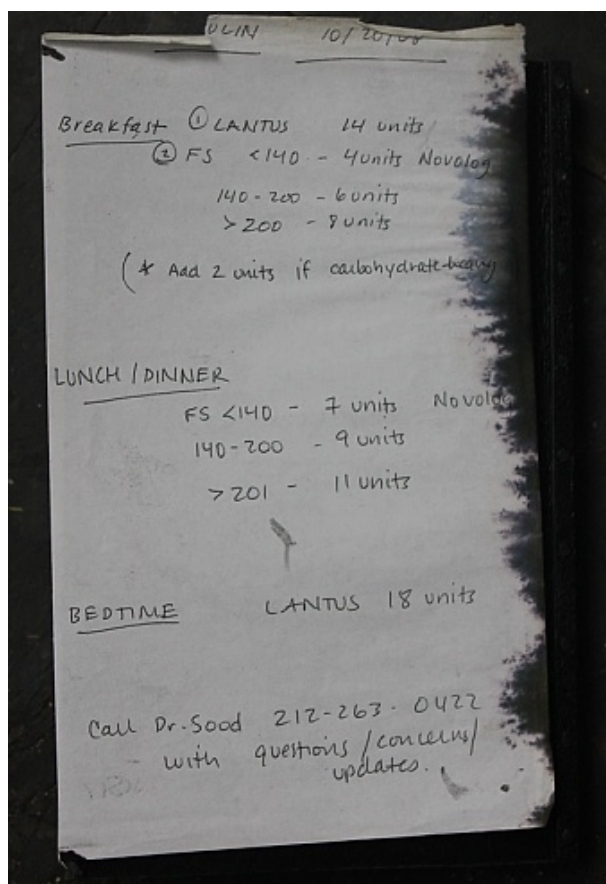 10/20/08
Breakfast ① LANTUS 14 units
② FS <140 - 4 units Novolog
140-200 - 6 units
>200 - 8 units
(* Add 2 units if carbohydrate-heavy
LUNCH / DINNER
FS <140 - 7 units Novolog
140-200 - 9 units
>201 - 11 units
BEDTIME LANTUS 18 units
Call Dr. Sood 212-263-0422
with questions/concerns/
updates.